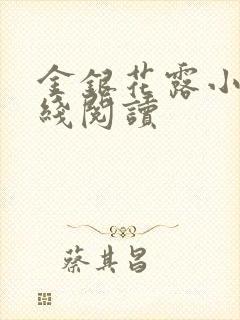 金銀花露小
綫閱讀
蔡其昌